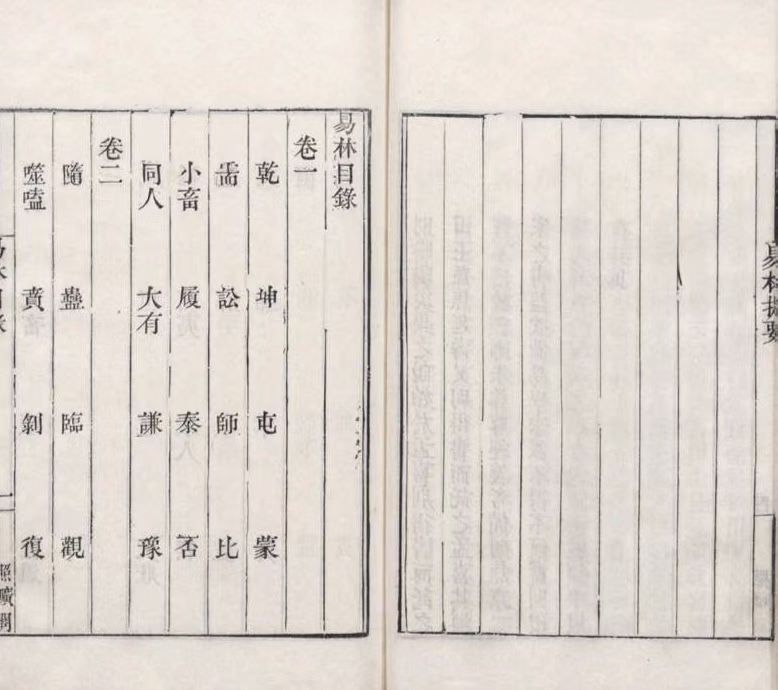 易林提要
易林目錄
卷一
乾　坤　屯　蒙
需　訟　師　比
小畜　履　泰　否
同人　大有　謙　豫
卷二
隨　蠱　臨　觀
噬嗑　賁　剝　復
易林目錄
照曠閣